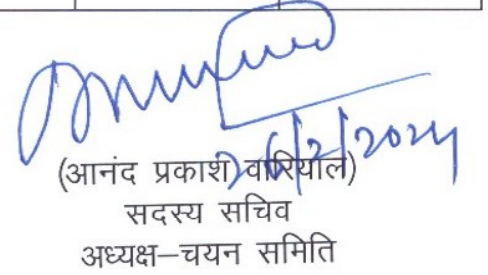 26/2/2024
(आनंद प्रकाश वारियाल)
सदस्य सचिव
अध्यक्ष–चयन समिति